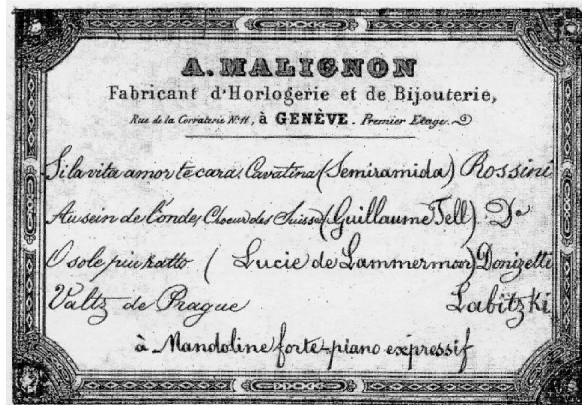 A. MALIGNON
Fabricant d'Horlogerie et de Bijouterie,
Rue de la Corraterie Nº 11, à GENÈVE. Premier Etage.
Si la vita amor te cara. Cavatina (Semiramida) Rossini
Au sein de l'onde, Choeur des Suisses (Guillaume Tell) Do
O sole piu ratto (Lucie de Lammermoor) Donizetti
Valtz de Prague Labitzki
à Mandoline forte-piano expressif